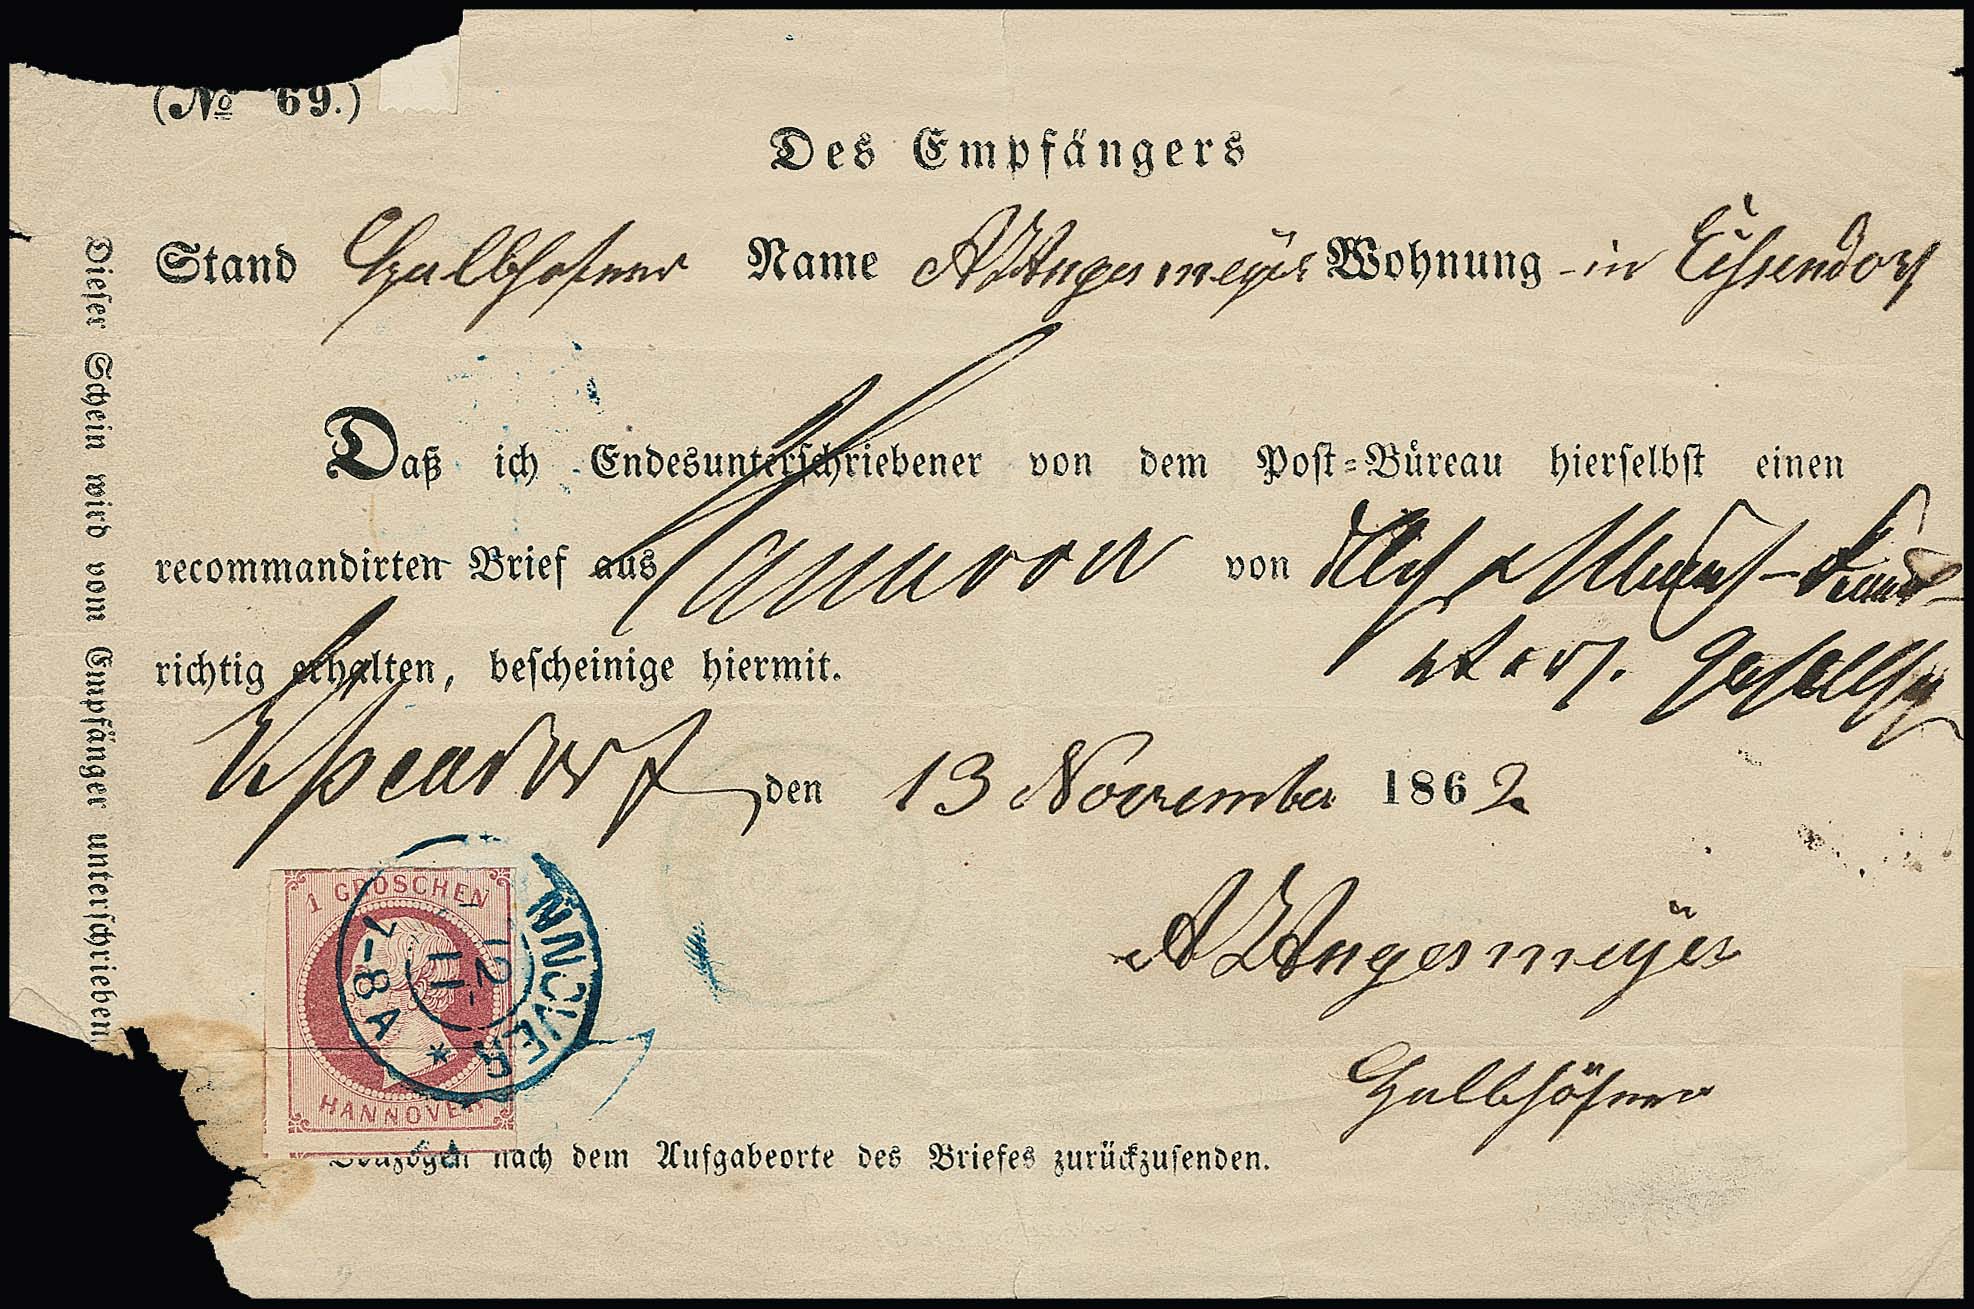 (No 69.)
Des Empfängers
Stand Halbhöfner Name A Wugesmeÿer Wohnung in
Daß ich Endesunterschriebener von dem Post-Büreau hierselbst einen
recommandirten Brief aus Hannover von
richtig erhalten, bescheinige hiermit.
den 13 November 1862
A Wugesmeÿer
Halbhöfner
nach dem Aufgabeorte des Briefes zurückzusenden.
Dieser Schein wird vom Empfänger unterschrieben
1 GROSCHEN
HANNOVER
NNOVER
12
11
7-8 A
*